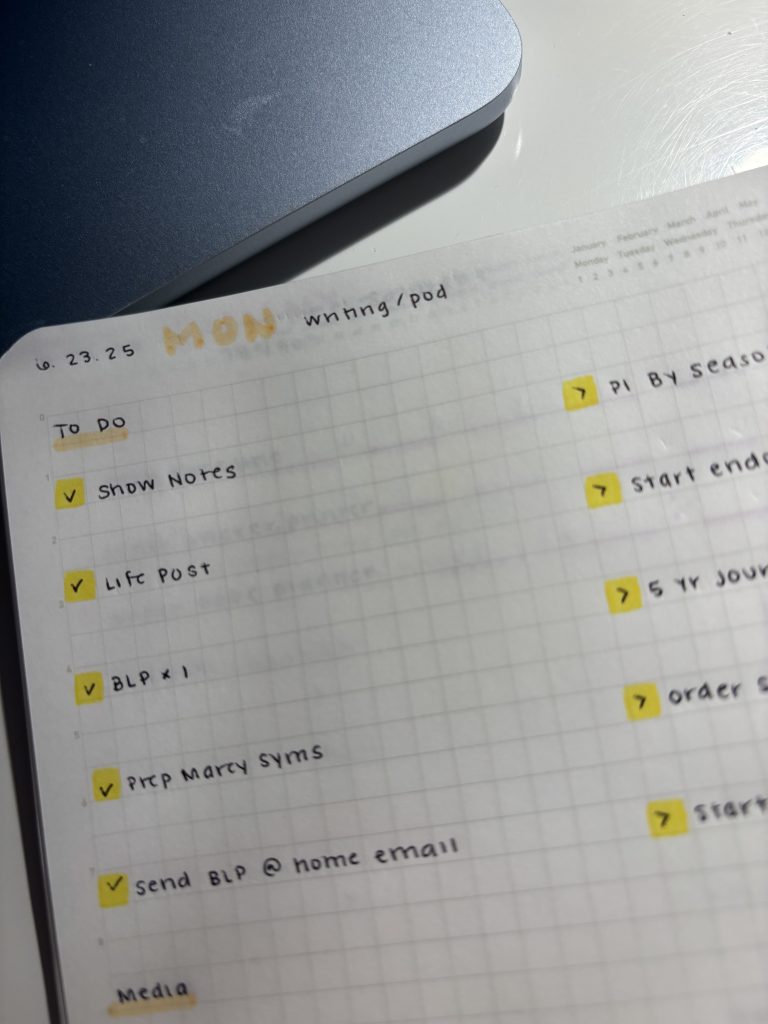 January February March April May
Monday Tuesday Wednesday Thursday
1 2 3 4 5 6 7 8 9 10 11
6.23.25 MON writing/pod
TO DO
Show Notes
Life Post
BLP x 1
Prep Marcy Syms
send BLP @ home email
Media
PI By
Start
5 Yr
order
Start
0
1
2
3
4
5
6
7
8